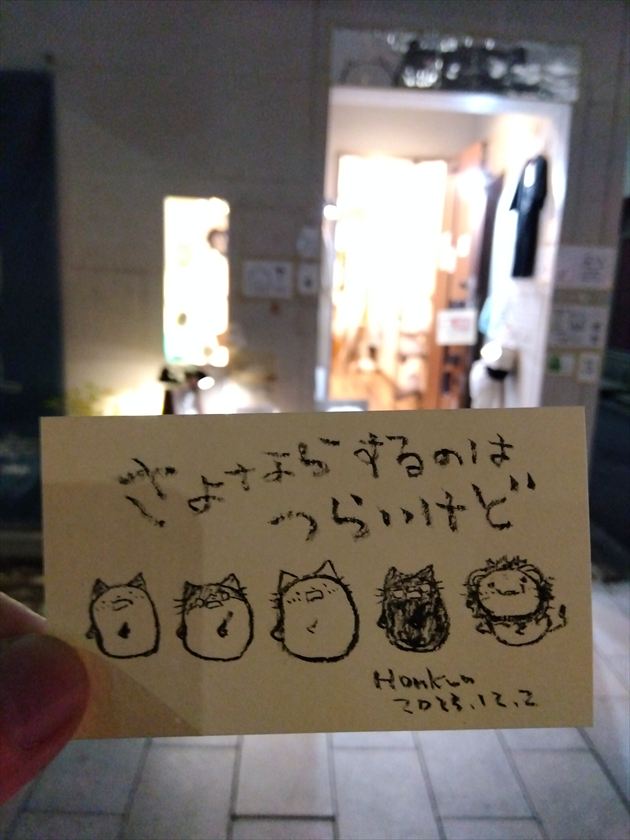 さよならするのは
つらいけど
Honkun
2023.12.2